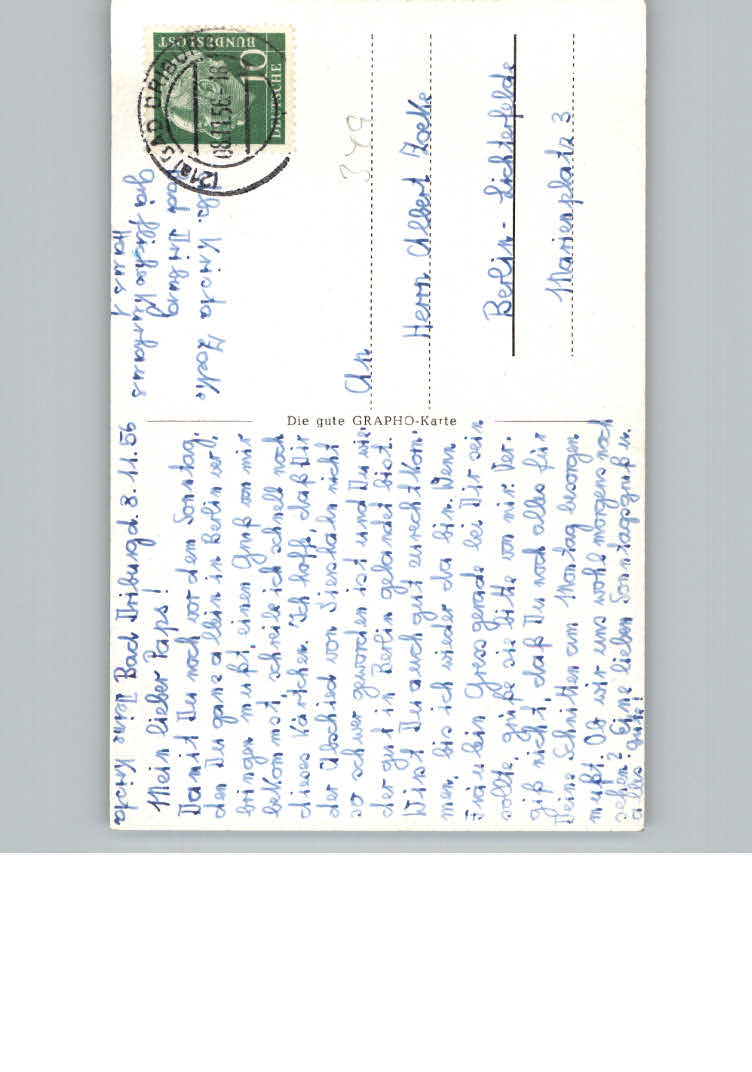 Bad Driburg d. 8.11.56
Mein lieber Paps!
Damit Du noch vor dem Sonntag,
den Du ganz allein in Berlin ver,
bringen mußt, einen Gruß von mir
bekommst, schreibe ich schnell noch
dieses Kärtchen. Ich hoffe, daß Dir
der Abschied von nicht
so schwer geworden ist und Du wie
der gut in Berlin gelandet bist.
Wirst Du auch gut zurechtkom-
men, bis ich wieder da bin. Wenn
Fräulein Greiss gerade bei Dir sein
sollte, grüße sie bitte von mir. Ver-
giß nicht, daß Du noch alles für
Deine Schnitten am Montag besorgen
mußt. Ob wir uns wohl morgens noch
sehen? Eine lieben Sonntagsgruß u.
alles gute!
Deine Krista
Die gute GRAPHO-Karte
Abs. Krista
Bad Driburg
Gräfliches Kurhaus
Haus 1
DEUTSCHE
BUNDESPOST
10
(21a) BAD DRIBURG
08.11.56.-18
349
An
Herrn Albert
Berlin-Lichterfelde
Marienplatz 3